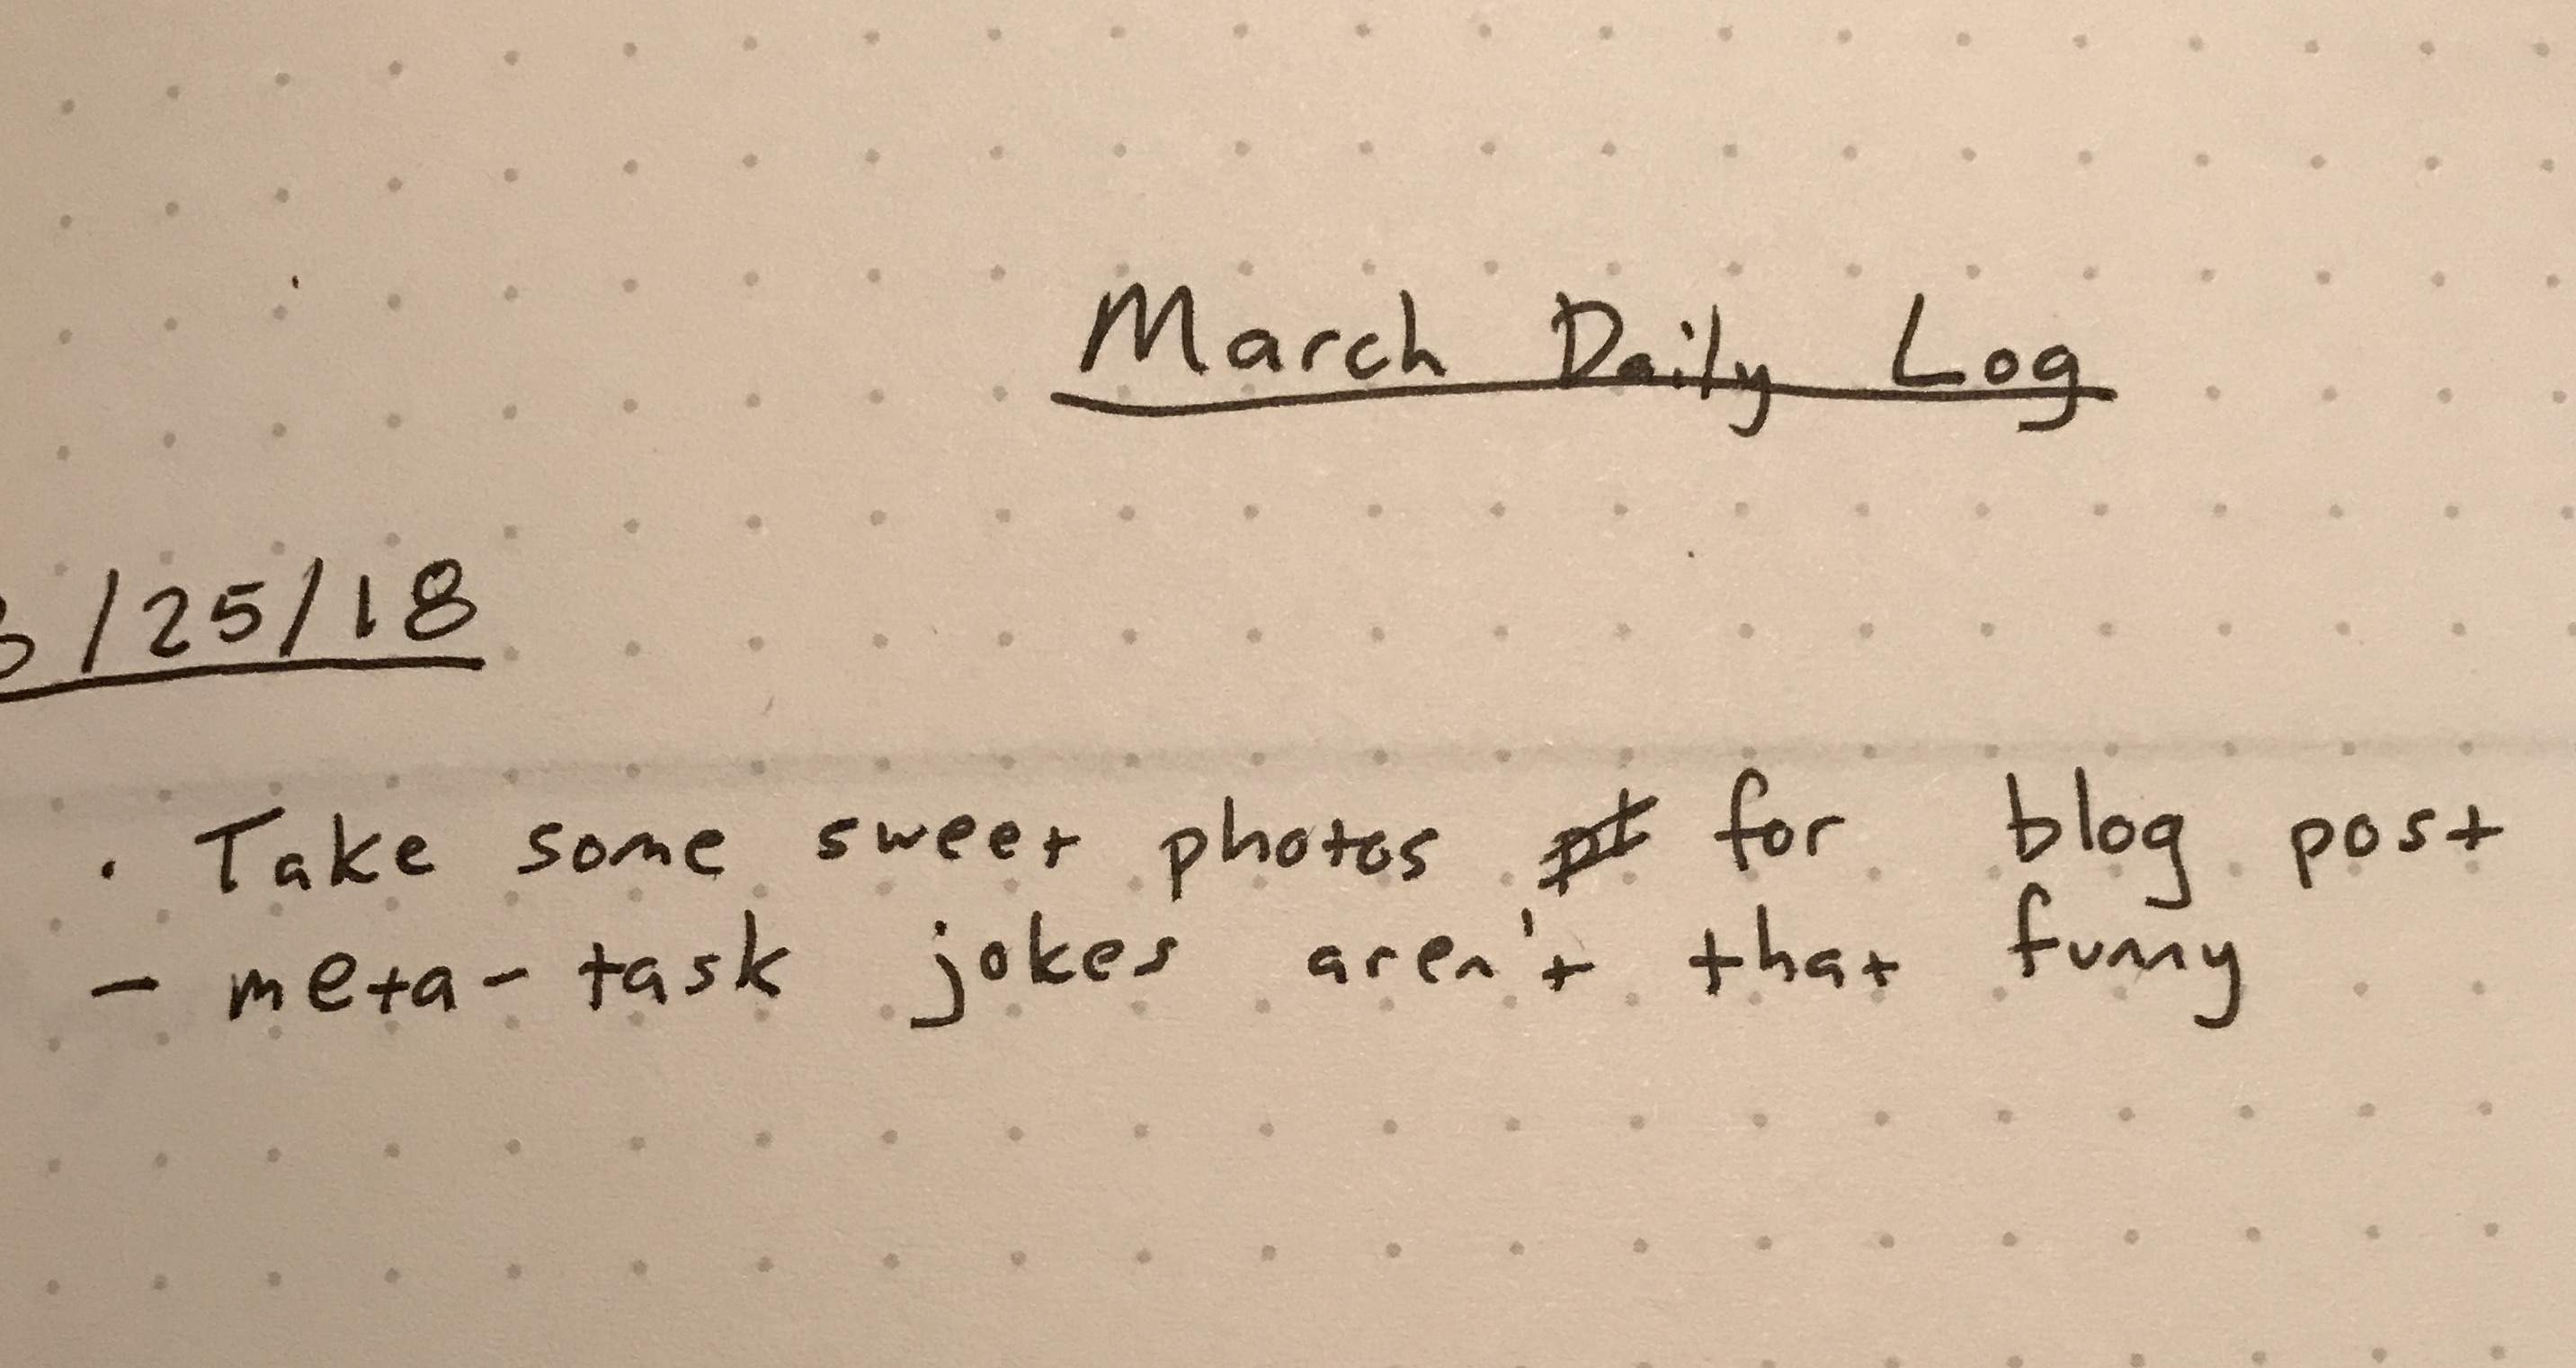 March Daily Log
3/25/18
· Take some sweet photos for blog post
- meta-task jokes aren't that funny